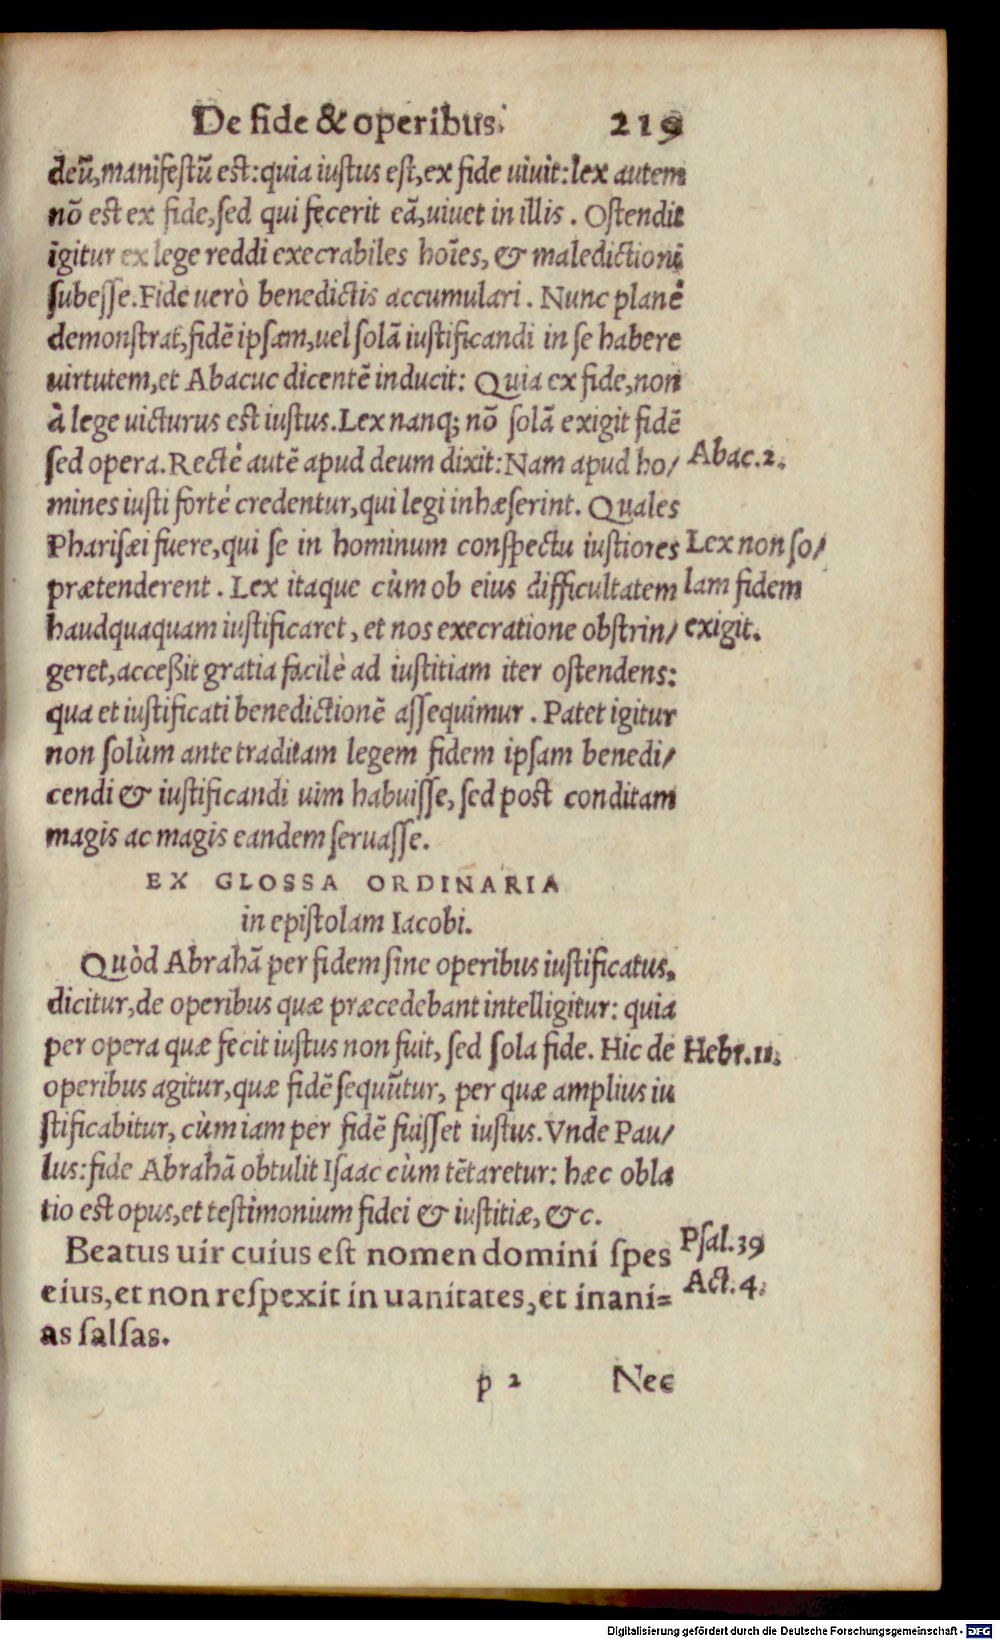 De fide & operibus. 219
deū, manifestū est: quia iustus est, ex fide uiuit: lex autem
nō est ex fide, sed qui fecerit eā, uiuet in illis. Ostendit
igitur ex lege reddi execrabiles hoīes, & maledictioni
subesse. Fide uerò benedictis accumulari. Nunc planè
demonstrat, fidē ipsam, uel solā iustificandi in se habere
uirtutem, et Abacuc dicentē inducit: Quia ex fide, non
à lege uicturus est iustus. Lex nanq; nō solā exigit fidē
sed opera. Rectè autē apud deum dixit: Nam apud ho/
Abac. 2.
mines iusti fortè credentur, qui legi inhæserint. Quales
Pharisæi fuere, qui se in hominum conspectu iustiores
Lex non so/
prætenderent. Lex itaque cùm ob eius difficultatem
lam fidem
haudquaquam iustificaret, et nos execratione obstrin/
exigit.
geret, acceßit gratia facilè ad iustitiam iter ostendens:
qua et iustificati benedictionē assequimur. Patet igitur
non solùm ante traditam legem fidem ipsam benedi/
cendi & iustificandi uim habuisse, sed post conditam
magis ac magis eandem seruasse.
EX GLOSSA ORDINARIA
in epistolam Iacobi.
Quòd Abrahā per fidem sine operibus iustificatus,
dicitur, de operibus quæ præcedebant intelligitur: quia
per opera quæ fecit iustus non fuit, sed sola fide. Hic de
Hebr. 11.
operibus agitur, quæ fidē sequūtur, per quæ amplius iu
stificabitur, cùm iam per fidē fuisset iustus. Vnde Pau/
lus: fide Abrahā obtulit Isaac cùm tētaretur: hæc obla
tio est opus, et testimonium fidei & iustitiæ, &c.
Beatus uir cuius est nomen domini spes
Psal. 39
eius, et non respexit in uanitates, et inani=
Act. 4.
as falsas.
p 2 Nec
Digitalisierung gefördert durch die Deutsche Forschungsgemeinschaft - DFG